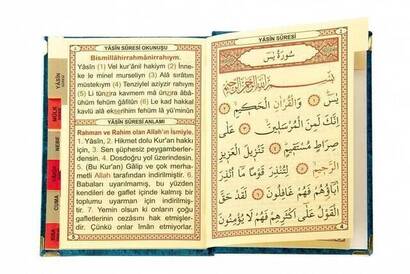 YÂSÎN SÛRESİ OKUNUŞU
Bismillâhirrahmânirrahıym.
Yâsîn (1) Vel kur'ânil hakiym (2) İnne-
ke le minel murseliyn (3) Alâ sırâtım
müstekıym (4) Tenziylel aziyzir rahıym
(5) Li tünzira kavmem mâ ünzira âbâ-
ühüm fehüm ğâfilûn (6) Le kad hakkal
kavlü alâ ekserihim fehüm lâ yü'minûn
YÂSÎN SÛRESİ ANLAMI
Rahman ve Rahim olan Allah'ın İsmiyle.
1. Yâsîn, 2. Hikmet dolu Kur'an hakkı
için, 3. Sen şüphesiz peygamberler-
densin. 4. Dosdoğru yol üzerindesin.
5. (Bu Kur'an) Gâlip ve çok merha-
metli Allah tarafından indirilmiştir.
6. Babaları uyarılmamış, bu yüzden
kendileri de gaflet içinde kalmış bir
toplumu uyarman için indirilmiştir.
7. Yemin olsun ki onların çoğu
gafletlerinin cezasını hak etmişler-
dir. Çünkü onlar İman etmiyorlar.
YÂSÎN
MÜLK
NEBE
CUMA
YÂSÎN SÛRESİ
سُورَةُ يٰسٓ
بِسْمِ اللّٰهِ الرَّحْمٰنِ الرَّحِيمِ
يٰسٓ ﴿١﴾ وَالْقُرْاٰنِ الْحَكِيمِ ﴿٢﴾
اِنَّكَ لَمِنَ الْمُرْسَلِينَ ﴿٣﴾ عَلٰى
صِرَاطٍ مُسْتَقِيمٍ ﴿٤﴾ تَنْزِيلَ الْعَزِيزِ
الرَّحِيمِ ﴿٥﴾ لِتُنْذِرَ قَوْمًا مَا اُنْذِرَ
اٰبَاؤُهُمْ فَهُمْ غَافِلُونَ ﴿٦﴾ لَقَدْ حَقَّ
الْقَوْلُ عَلٰى اَكْثَرِهِمْ فَهُمْ لَا يُؤْمِنُونَ
4